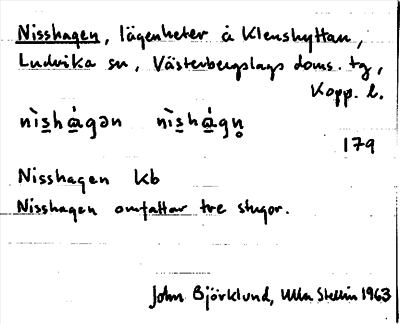 Nisshagen, lägenheter å Klenshyttan,
Ludvika sn, Västerbergslags doms. tg,
Kopp. l.
nìs̲há̲gən nìs̲há̲gn̥
179
Nisshagen kb
Nisshagen omfattar tre stugor.
John Björklund, Ulla Stellin 1963